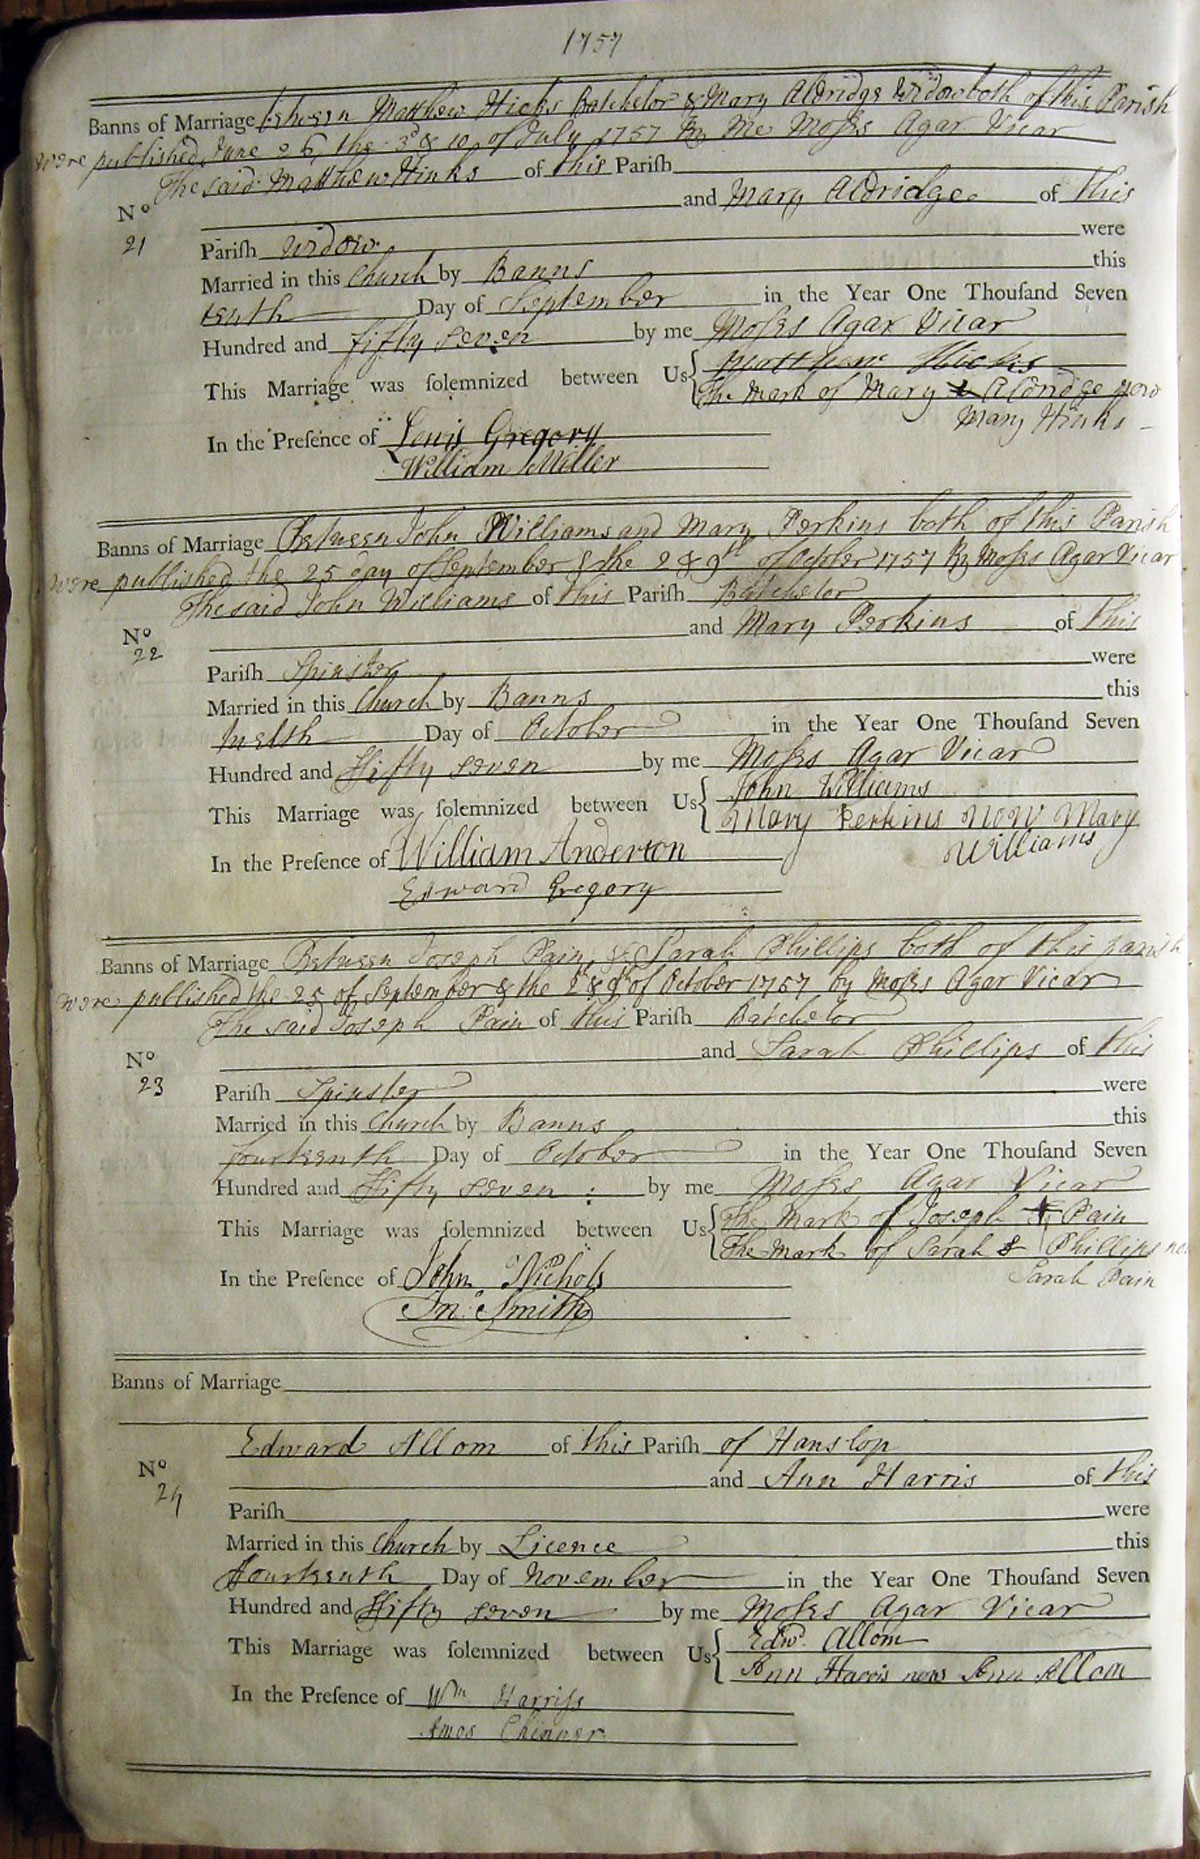 1757
Banns of Marriage between Matthew Hicks Batchelor & Mary Aldridge Widow both of this Parish
were published June 26, the 3d & 10 of July 1757 By Me Moses Agar Vicar
The said Matthew Hinks of this Parish
and Mary Aldridge of this
No
21
Parish Widow were
Married in this Church by Banns this
tenth Day of September in the Year One Thouſand Seven
Hundred and fifty seven by me Moſes Agar Vicar
This Marriage was ſolemnized between Us Matthew Hicks
The Mark of Mary x Aldridge now
Mary Hinks
In the Preſence of Lewis Gregory
William Miller
Banns of Marriage Between John Williams and Mary Perkins both of this Parish
were published the 25 day of September & the 2 & 9th of Octber 1757 By Moſes Agar Vicar
The said John Williams of this Pariſh Batchelor
and Mary Perkins of this
No
22
Pariſh Spinster were
Married in this Church by Banns this
twelth Day of October in the Year One Thouſand Seven
Hundred and Fifty seven by me Moſes Agar Vicar
This Marriage was ſolemnized between Us John Williams
Mary Perkins now Mary
Williams
In the Preſence of William Anderson
Edward Gregory
Banns of Marriage Between Joseph Pain, & Sarah Phillips both of this parish
were published the 25 of September & the 2d & 9th of October 1757 by Moſes Agar Vicar
The said Joseph Pain of this Pariſh Batchelor
and Sarah Phillips of this
No
23
Pariſh Spinster were
Married in this Church by Banns this
fourteenth Day of October in the Year One Thouſand Seven
Hundred and Fifty seven : by me Moſes Agar Vicar
This Marriage was ſolemnized between Us The Mark of Joseph + Pain
The Mark of Sarah Phillips now
Sarah Pain
In the Preſence of John Nichols
Jn: Smith
Banns of Marriage
Edward Allom of this Pariſh of Hanslop
and Ann Harris of this
No
24
Pariſh were
Married in this Church by Licence this
Fourteenth Day of November in the Year One Thouſand Seven
Hundred and Fifty seven by me Moſes Agar Vicar
This Marriage was ſolemnized between Us Edwd. Allom
Ann Harris now Ann Allom
In the Preſence of Wm Harriſs
Amos Chinner